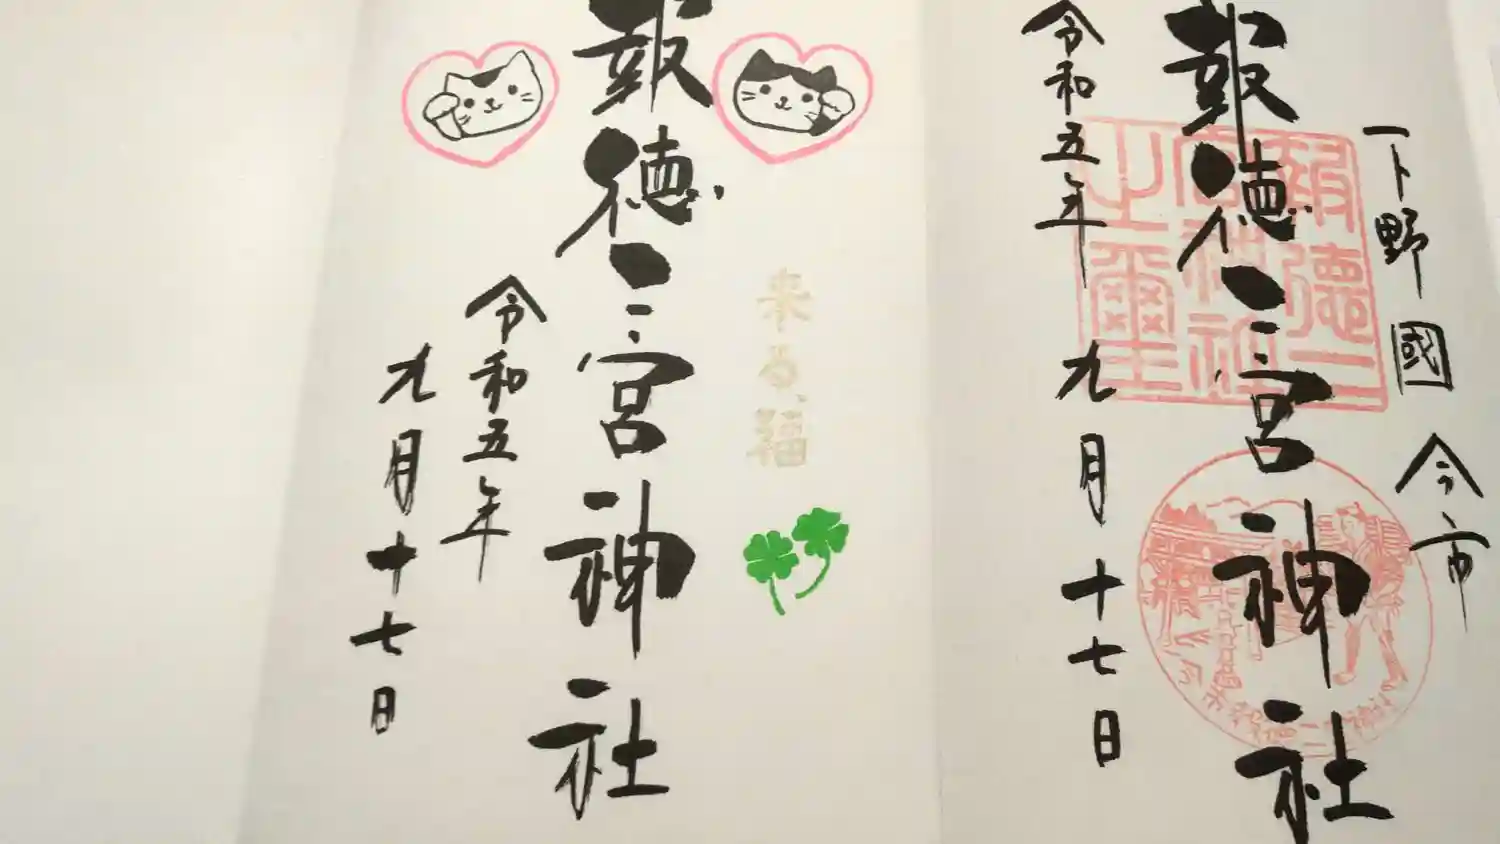 下野國 今市
報徳二宮神社
令和五年
九月十七日
報徳二
宮神社
之璽
来る福
報徳二宮神社
令和五年
九月十七日